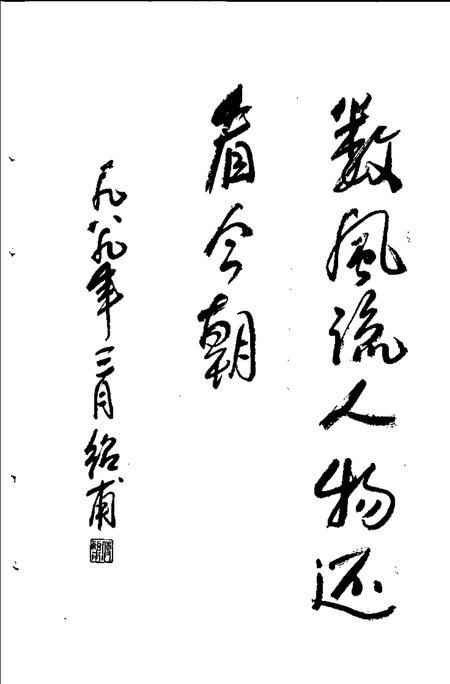 数風流人物还
看今朝
一九八九年三月绍甫